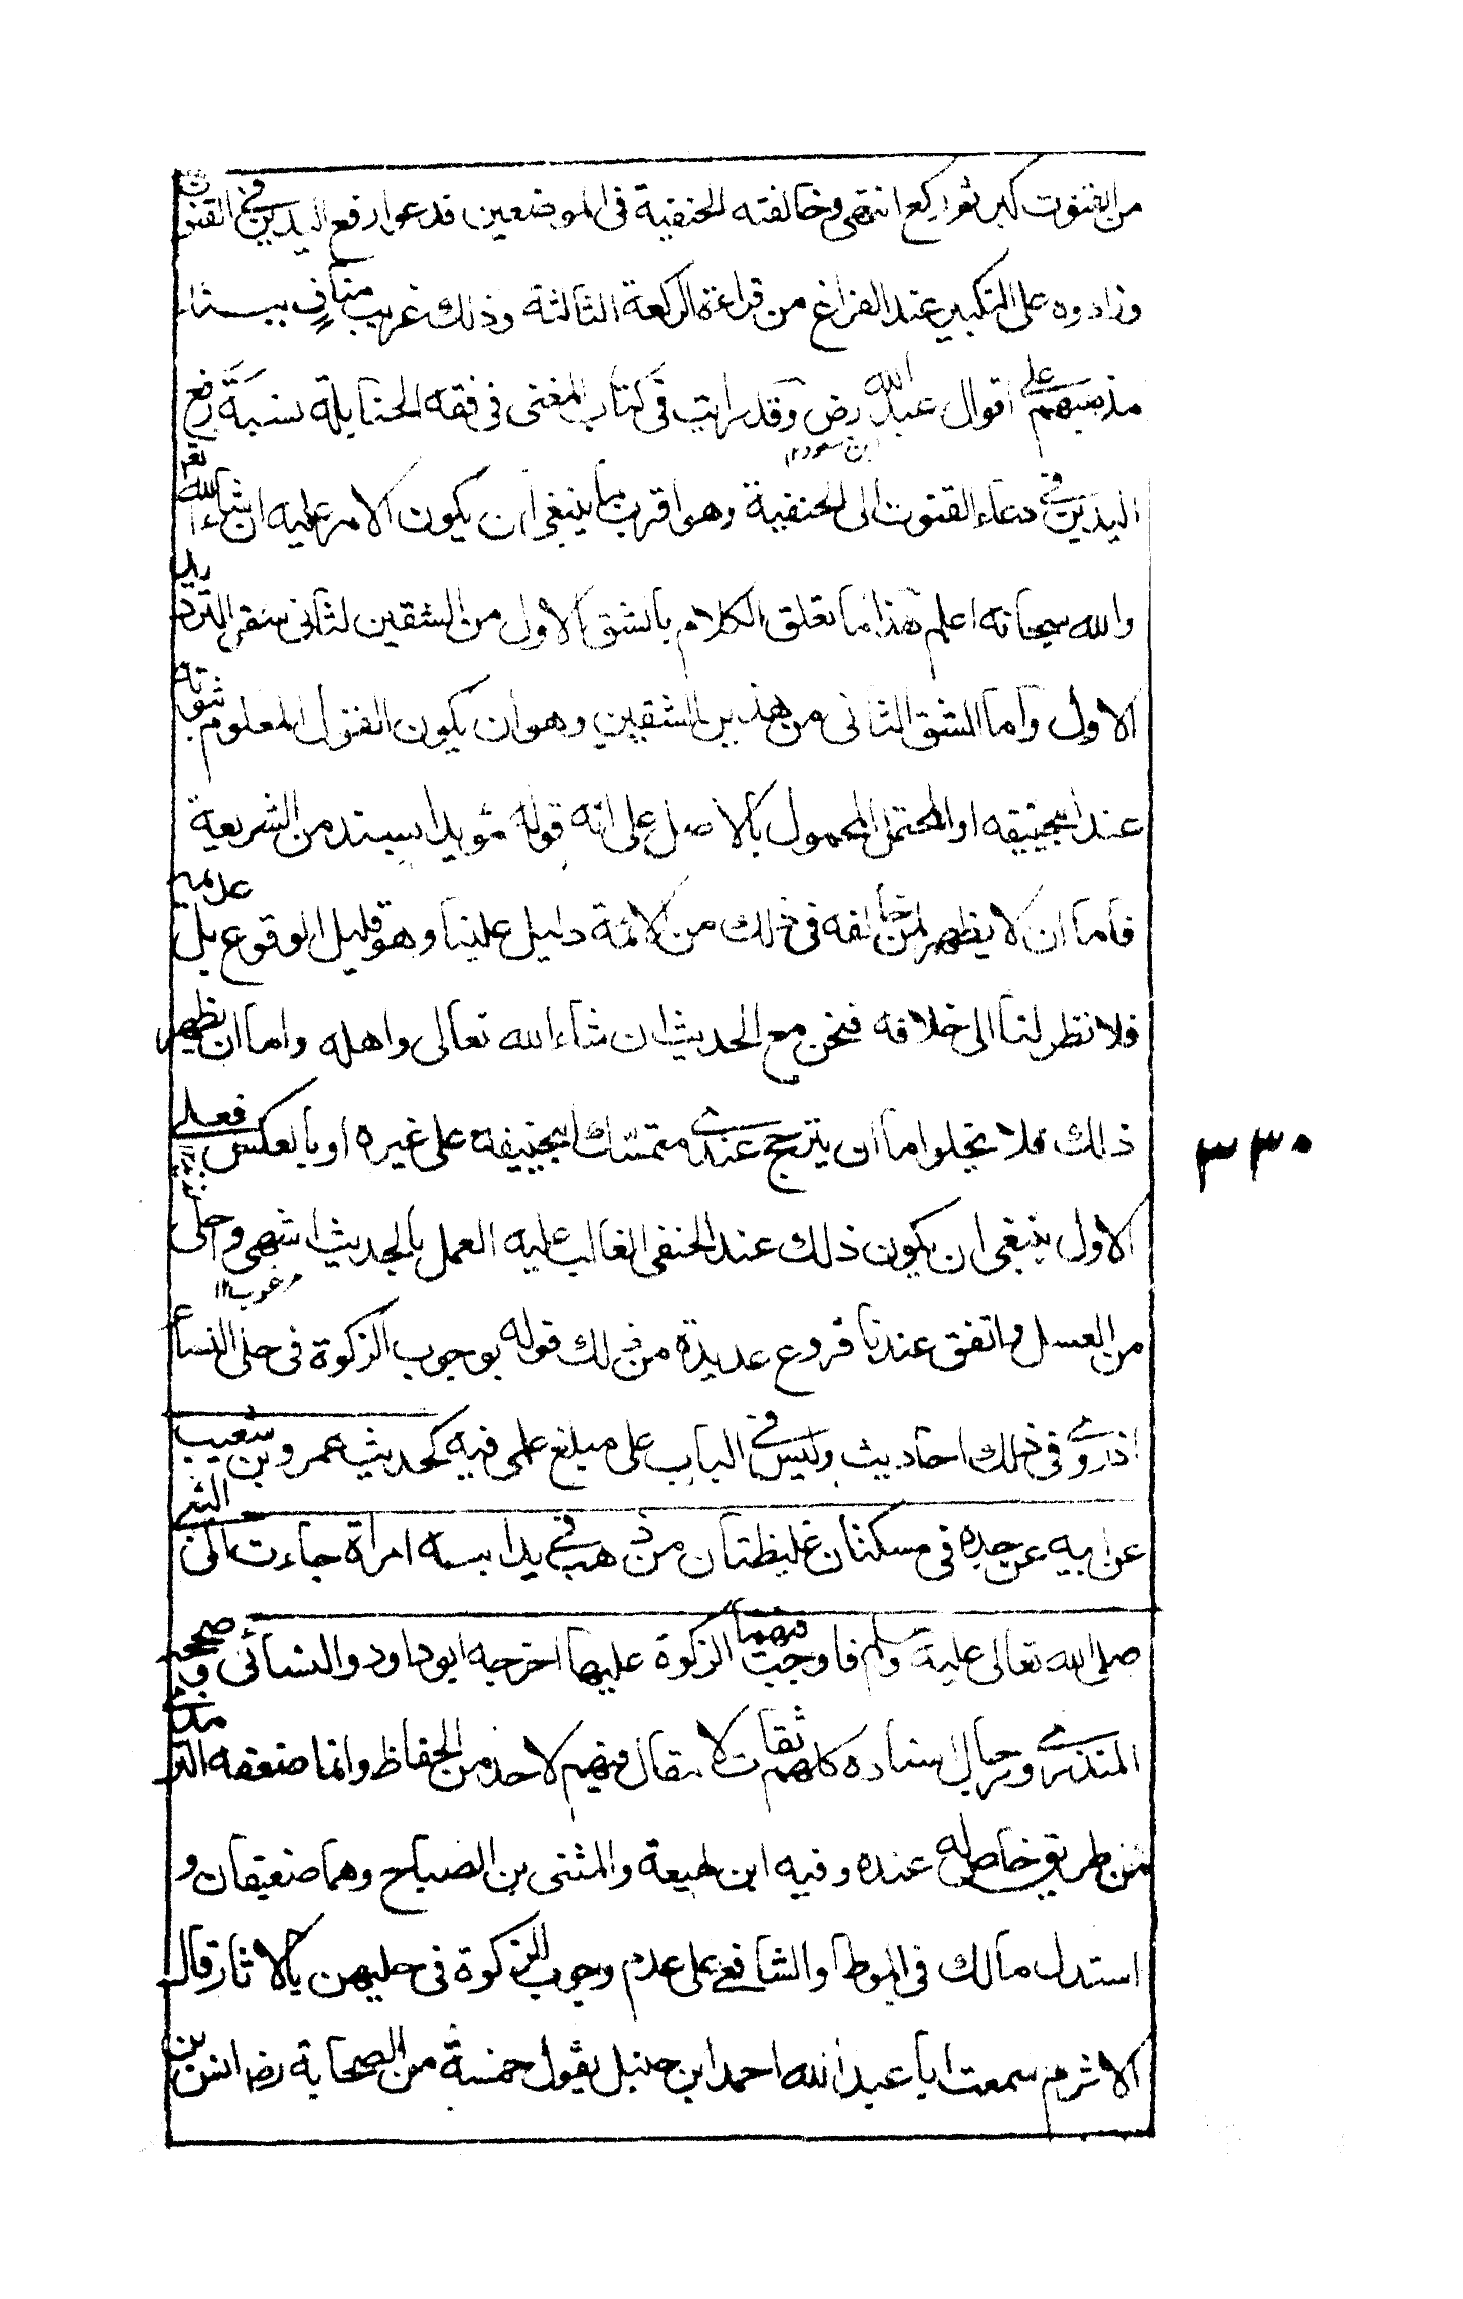 من القنوت كبر ثم ركع انتهى وخالفته الحنفية فى الموضعين فدعوا رفع اليدين فى القنوت
وزادوه على التكبير عند الفراغ من قراءة الركعة الثالثة وذلك غريب مناف ببناء
مذهبهم على اقوال عبد الله رض وقد رايت فى كتاب المغنى فى فقه الحنابلة نسبة رفع
ابن مسعود ١٢
اليدين فى دعاء القنوت الى الحنفية وهو اقرب بما ينبغى ان يكون الامر عليه ان شاء الله تعالى
والله سبحانه اعلم هذا ما تعلق الكلام بالشق الاول من الشقين لثانى شقى الترديد
الاول واما الشق الثانى من هذين الشقين وهو ان يكون القول المعلوم ثبوته
عند ابيحنيفه او المحتمل المحمول بالاصل على انه قوله مؤيدا بسند من الشريعة
فاما ان لا يظهر لمن خالفه فى ذلك من الائمة دليل علينا وهو قليل الوقوع بل عديمه
فلا نظر لنا الى خلافه فنحن مع الحديث ان شاء الله تعالى واهله واما ان يظهر
ذلك فلا يخلوا اما ان يترجح عندى متمسك ابيحنيفة على غيره او بالعكس فعلى
٣٣٠
الاول ينبغى ان يكون ذلك عند الحنفى الغالب عليه العمل بالحديث اشهى وحلى
مرغوب ١٢
من العسل واتفق عندنا فروع عديدة من ذلك قوله بوجوب الزكوة فى حلى النساء
اذ روى فى ذلك احاديث وليس فى الباب على مبلغ علمى فيه كحديث عمرو بن شعيب
عن ابيه عن جده فى مسكتان غليظتان من ذهب فى يد ابنة امراة جاءت الى النبى
صلى الله تعالى عليه وسلم فاوجب فيهما الزكوة عليها اخرجه ابو داود والنسائى وصححه
المنذرى ورجال اسناده كلهم ثقات لا مقال فيهم لاحد من الحفاظ وانما ضعفه الترمذى
من طريق خاص له عنده وفيه ابن لهيعة والمثنى بن الصباح وهما ضعيفان و
استدل مالك فى الموطا والشافعى على عدم وجوب الزكوة فى حليهن بالاثار قال
الاثرم سمعت ابا عبد الله احمد ابن حنبل يقول خمسة من الصحابة رض انس بن